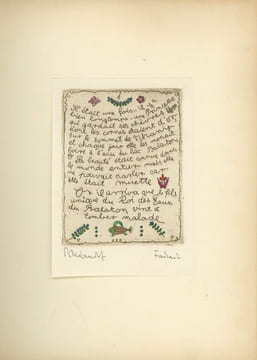 Il était une fois, il y a
bien longtemps, une Princesse
qui gardait ses chèvres
dont les cornes étaient d'or
sur le sommet de Tihany
et chaque jour elle les menait
boire à l'eau du lac Balaton
Sa beauté était connue dans
le monde entier mais elle
ne pouvait parler car
elle était muette
Or il arriva que le fils
unique du Roi des Eaux
du Balaton vint à
tomber malade